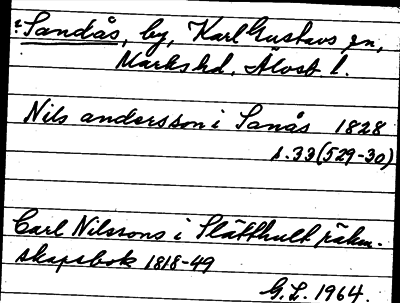 :Sandås, by, Karl Gustavs sn,
Marks hd, Älvsb l.
Nils andersson i Sanås 1828
s.33(529-30)
Carl Nilssons i Slätthult räken-
skapsbok 1818-49
G.L. 1964.